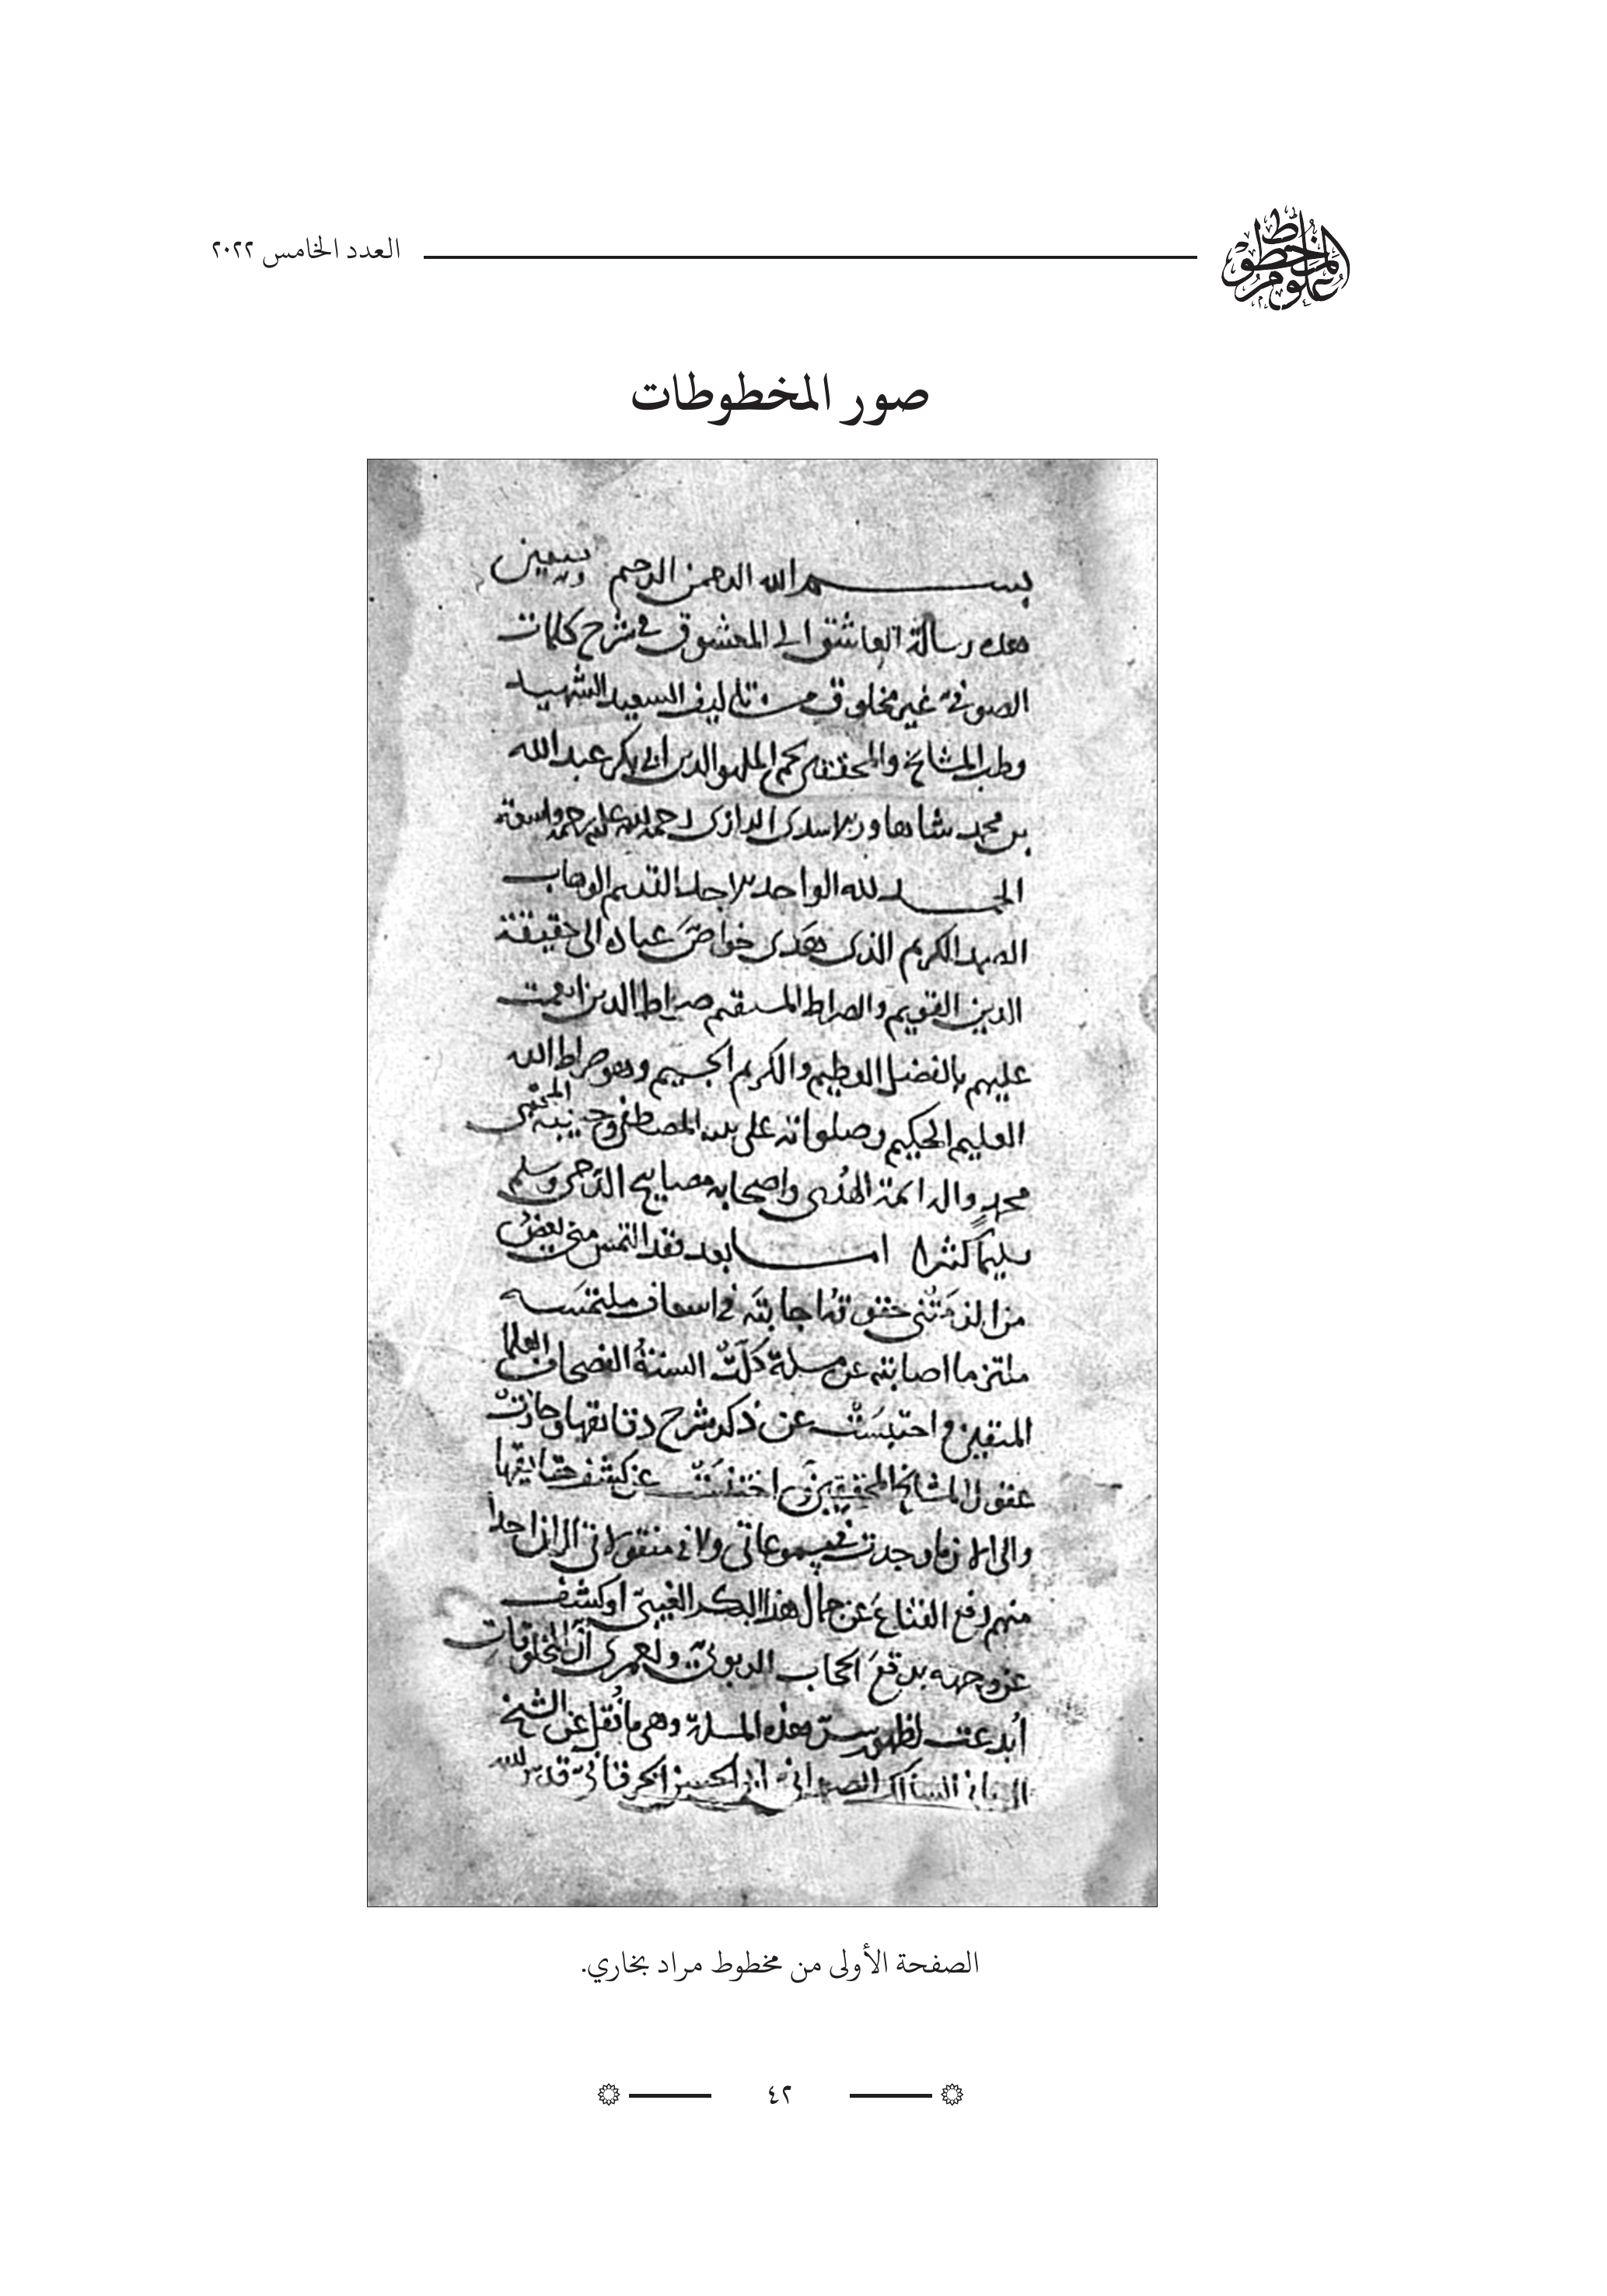 علوم المخطوط
العدد الخامس ٢٠٢٢
صور المخطوطات
بسم الله الرحمن الرحيم
هذه رسالة العاشق الى المعشوق في شرح كلمات
الصوفي غير مخلوق من تاليف السعيد الشهيد
قطب المشايخ والمحققين نجم المله والدين ابي بكر عبد الله
بن محمد شاهاور الاسدى الرازى رحمة الله عليه رحمة واسعة
الحمد لله الواحد الاحد القديم الوهاب
الصمد الكريم الذى هدى خواص عباده الى حقيقة
الدين القويم والصراط المستقيم صراط الذين انعمت
عليهم بالفضل العظيم والكرم الجسيم وهو صراط الله
العليم الحكيم وصلواته على نبيه المصطفى وحبيبه المجتبى
محمد واله ائمة الهدى واصحابه مصابيح الدجى وسلم
تسليما كثيرا اما بعد فقد التمس منى بعض
من الزمتنى حقوقه اجابته في اسعاف ملتمسه
ملتزما اصابته عن مسلة كلت السنة الفصحا العلما
المتقين و احتبست عن ذكر شرح دقائقها وحارت
عقول المشايخ المحققين و اختنست عن كشف حقايقها
والى الان ما وجدت في مسموعاتي ولا في منقولاتي ان احدا
منهم رفع القناع عن جمال هذا البكر الغيبي او كشف
عن وجهه برقع الحجاب الربوبي ولعمرى ان المخلوقات
أبدعت لظهور سر هذه المسلة وهى ما نقل عن الشيخ
السالك ابي الحسن الخرقاني قدس الله
الصفحة الأولى من مخطوط مراد بخاري.
٤٢